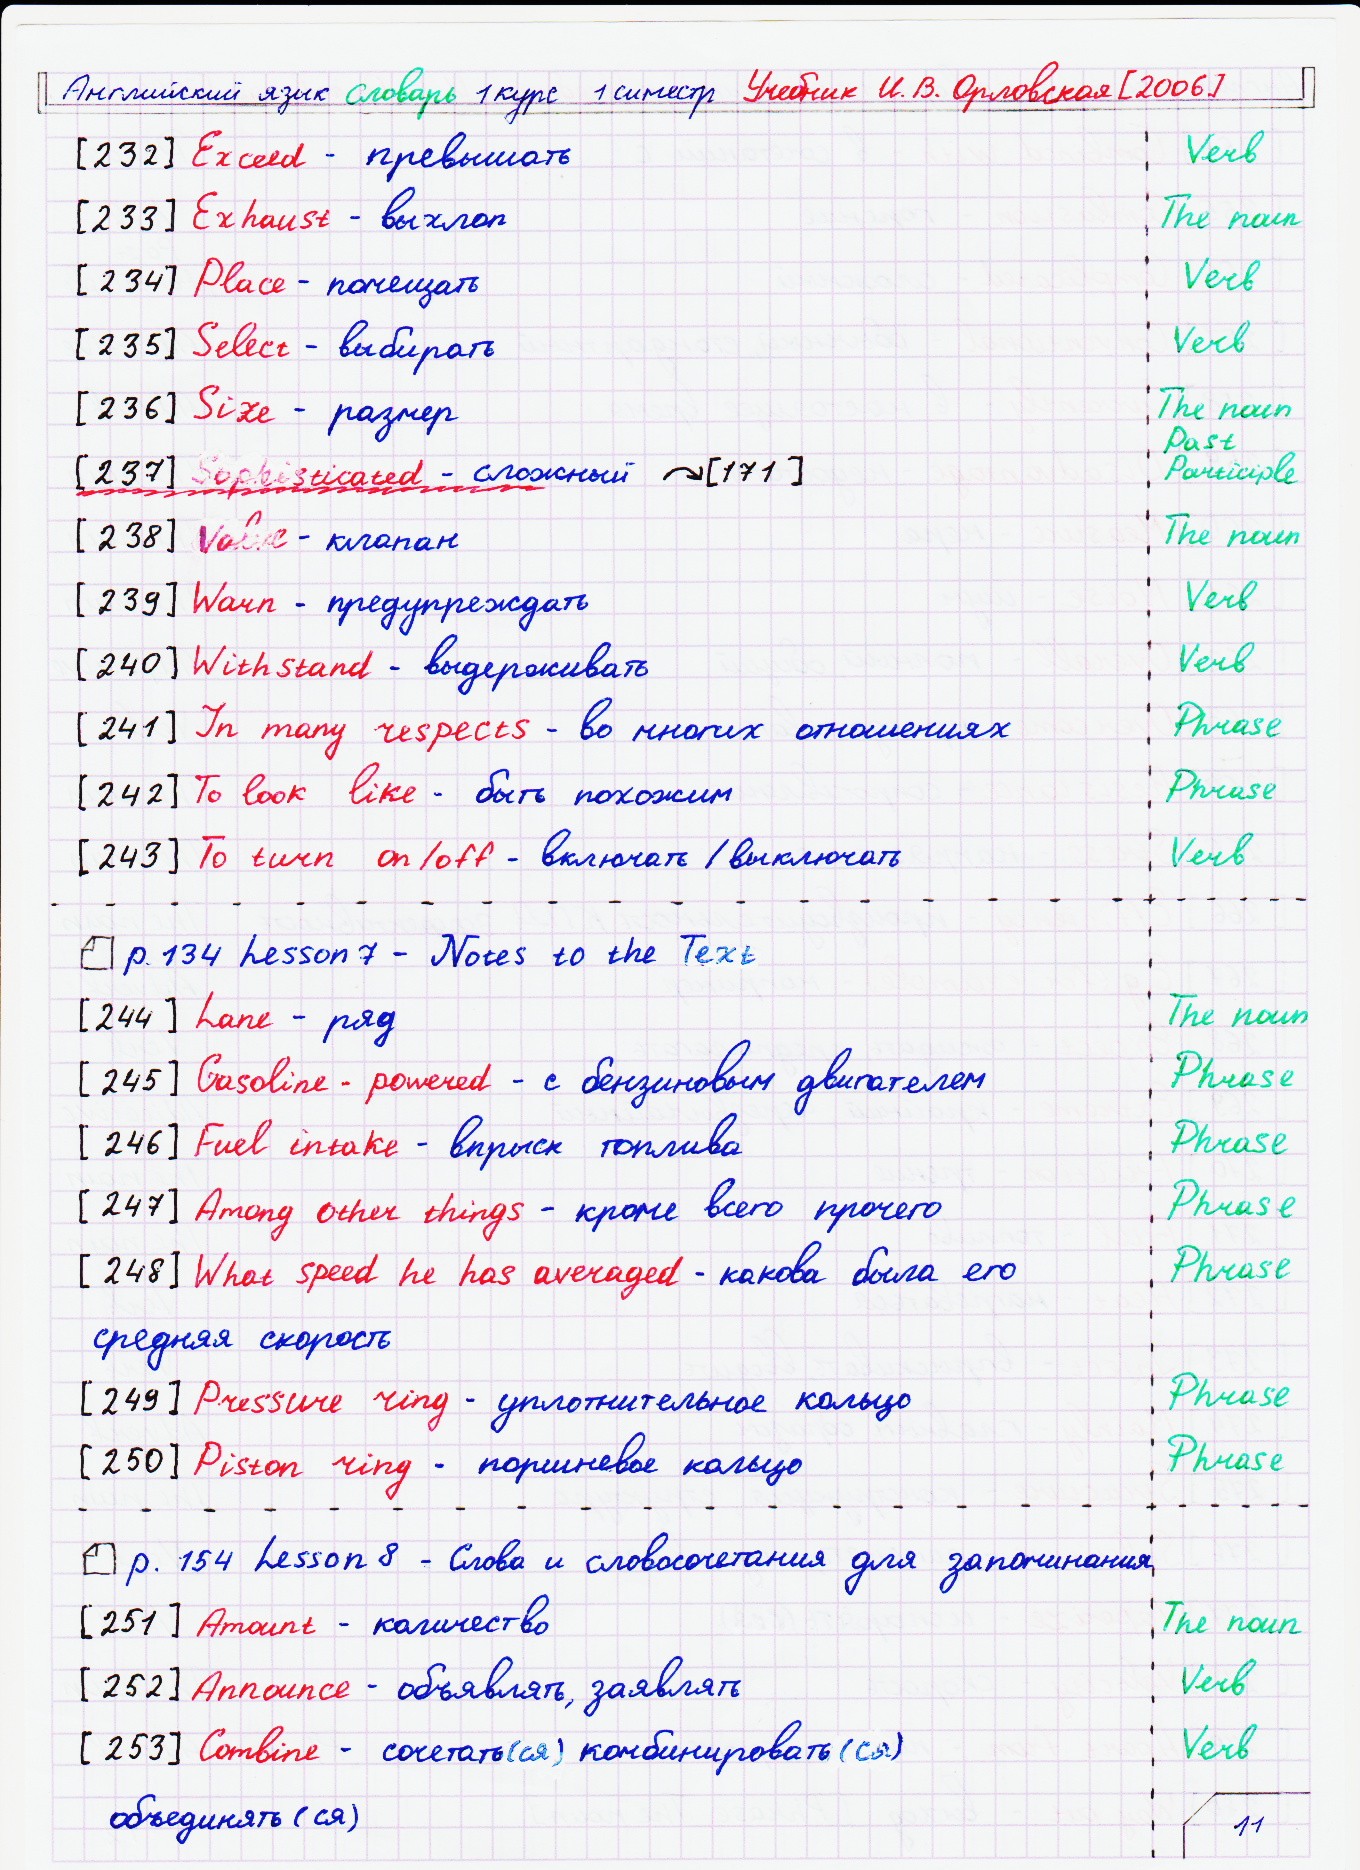 Английский язык словарь 1 курс 1 симестр Учебник И. В. Орловская [2006]
[232] Exceed - превышать Verb
[233] Exhaust - выхлоп The noun
[234] Place - помещать Verb
[235] Select - выбирать Verb
[236] Size - размер The noun
[237] Sophisticated - сложный [171] Past Participle
[238] Valve - клапан The noun
[239] Warn - предупреждать Verb
[240] Withstand - выдерживать Verb
[241] In many respects - во многих отношениях Phrase
[242] To look like - быть похожим Phrase
[243] To turn on/off - включать / выключать Verb
p. 134 Lesson 7 - Notes to the Text
[244] Lane - ряд The noun
[245] Gasoline - powered - с бензиновым двигателем Phrase
[246] Fuel intake - впрыск топлива Phrase
[247] Among other things - кроме всего прочего Phrase
[248] What speed he has averaged - какова была его Phrase
средняя скорость
[249] Pressure ring - уплотнительное кольцо Phrase
[250] Piston ring - поршневое кольцо Phrase
p. 154 Lesson 8 - Слова и словосочетания для запоминания
[251] Amount - количество The noun
[252] Announce - объявлять, заявлять Verb
[253] Combine - сочетать(ся) комбинировать(ся) Verb
объединять (ся)
11